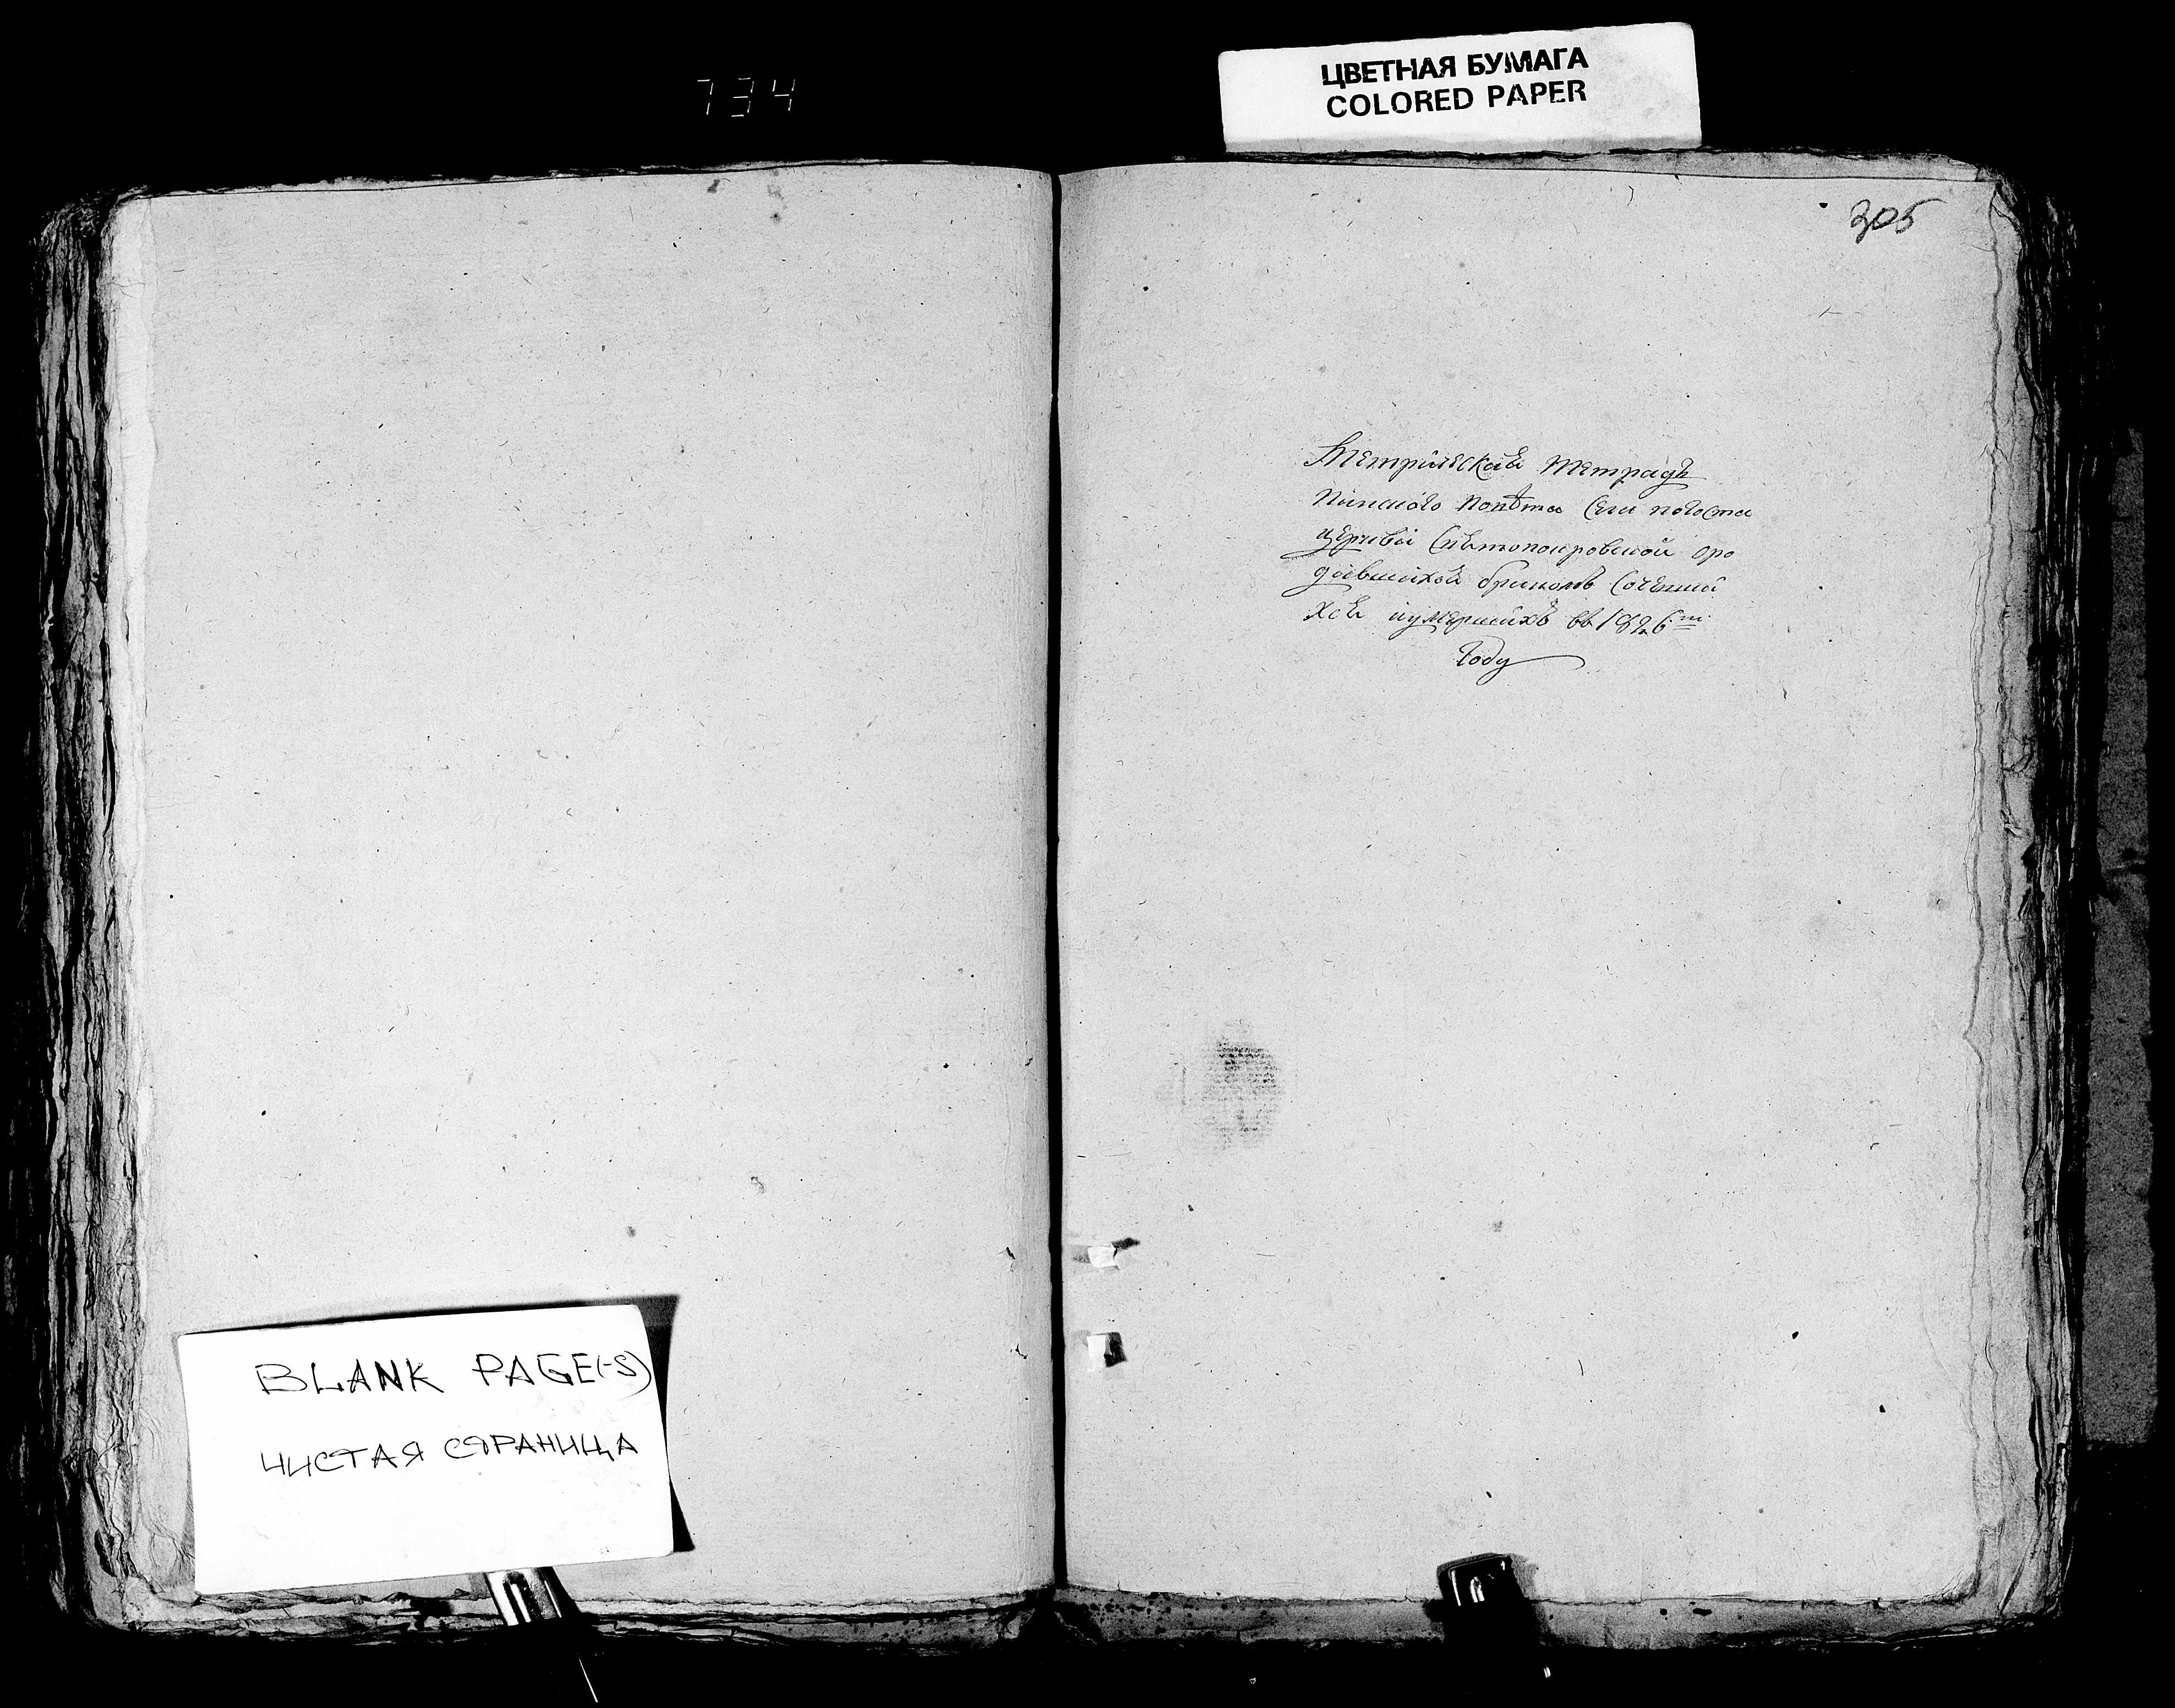 734
ЦВЕТНАЯ БУМАГА
COLORED PAPER
305
Метрическая тетрадь
Пинского повѣта села погоста
церкви Святопокровской оро
дившихся бракомъ Сочеташи
хся иумершихъ въ 1826м
Году
BLANK PAGE(-S)
ЧИСТАЯ СТРАНИЦА